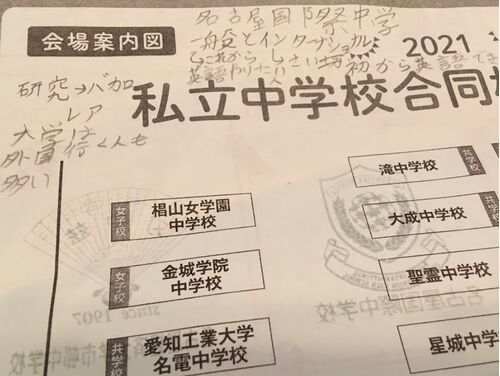 会場案内図
名古屋国際中学
一般とインターナショナル
2021
これから
初から英語でき
英語やりたい
研究→バカ
レア
私立中学校合同
大学は
外国行く人も
多い
共学校
滝中学校
女子校
椙山女学園
中学校
共学校
大成中学校
女子校
金城学院
中学校
聖霊中学校
共学校
愛知工業大学
名電中学校
星城中学校
since 1907
名古屋国際中学校